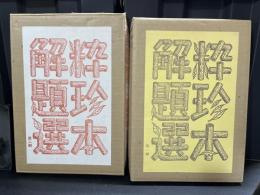 粋珍本
解題選
粋珍本
解題選